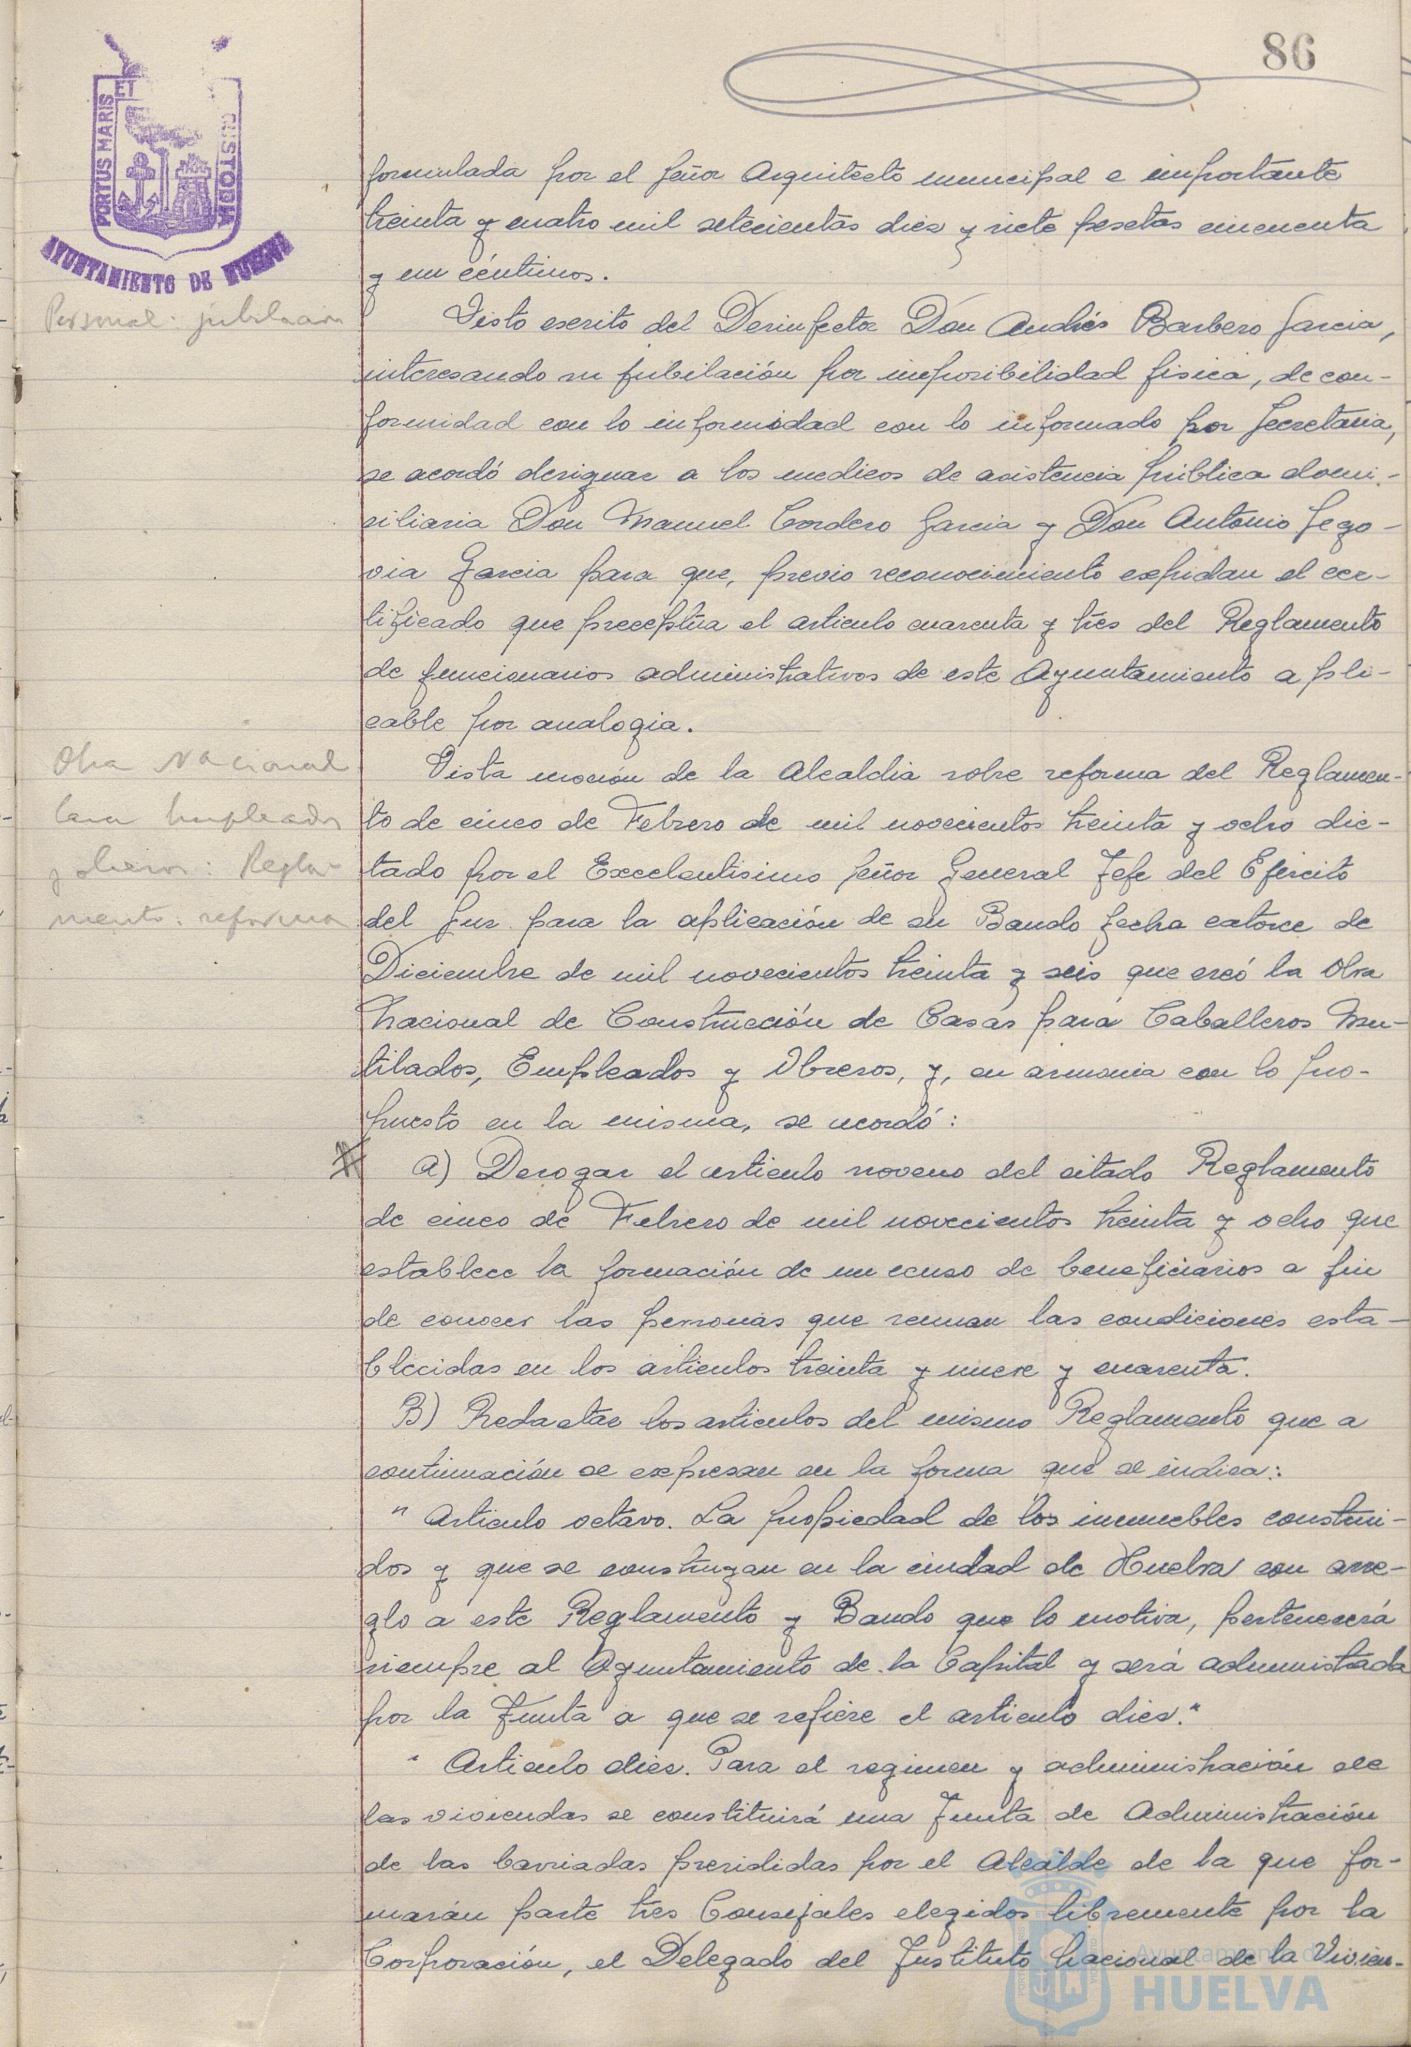 86
PORTUS MARIS ET CUSTODIA
AYUNTAMIENTO DE HUELVA
formulada por el señor Arquitecto municipal e importante
treinta y cuatro mil setecientas diez y siete pesetas cincuenta
y un céntimos.
Personal: jubilación
Visto escrito del Desinfector Don Andrés Barbero García,
interesando su jubilación por imposibilidad fisica, de con-
formidad con lo informidad con lo informado por Secretaria,
se acordó designar a los medicos de asistencia pública domi-
siliaria Don Manuel Cordero Garcia y Don Antonio Sego-
via Garcia para que, previo reconocimiento expidan el cer-
tificado que preceptúa el articulo cuarenta y tres del Reglamento
de funcionarios administrativos de este Ayuntamiento apli-
cable por analogia.
Obra Nacional
Casa Empleados
y obreros: Regla-
mento: reforma
Vista moción de la Alcaldia sobre reforma del Reglamen-
to de cinco de Febrero de mil novecientos treinta y ocho dic-
tado por el Excelentisimo señor General Jefe del Ejército
del Sur para la aplicación de su Bando fecha catorce de
Diciembre de mil novecientos treinta y seis que creó la Obra
Nacional de Construcción de Casas para Caballeros Mu-
tilados, Empleados y Obreros, y, en armonia con lo pro-
puesto en la misma, se acordó:
A) Derogar el articulo noveno del citado Reglamento
de cinco de Febrero de mil novecientos treinta y ocho que
establece la formación de un censo de beneficiarios a fin
de conocer las personas que reunan las condiciones esta-
blecidas en los articulos treinta y nueve y cuarenta.
B) Redactar los articulos del mismo Reglamento que a
continuación se expresan en la forma que se indica:
" Articulo octavo. La propiedad de los inmuebles construi-
dos y que se construyan en la ciudad de Huelva con arre-
glo a este Reglamento y Bando que lo motiva, pertenecerá
siempre al Ayuntamiento de la Capital y será administrada
por la Junta a que se refiere el articulo diez."
" Articulo diez. Para el regimen y administración de
las viviendas se constituirá una Junta de Administración
de las barriadas presididas por el Alcalde de la que for-
marán parte tres Consejales elegidos libremente por la
Corporación, el Delegado del Instituto Nacional de la Vivien-
Ayuntamiento de
HUELVA